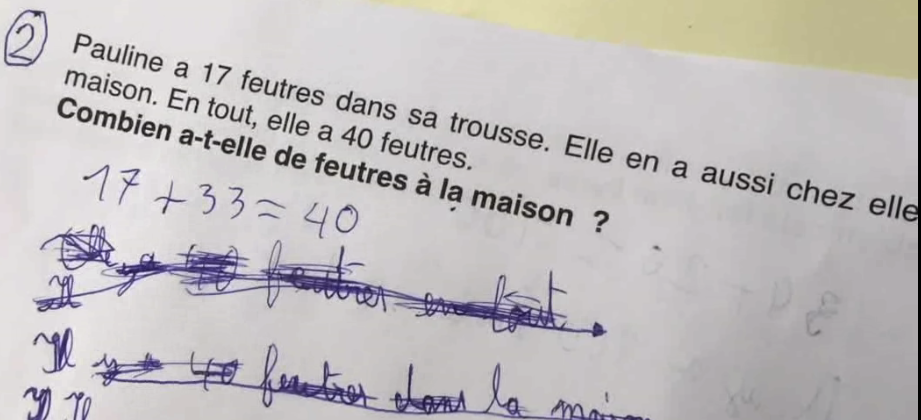 2
Pauline a 17 feutres dans sa trousse. Elle en a aussi chez elle
maison. En tout, elle a 40 feutres.
Combien a-t-elle de feutres à la maison ?
17 + 33 = 40
feutres en tout.
Il
Il y a 40 feutres dans la